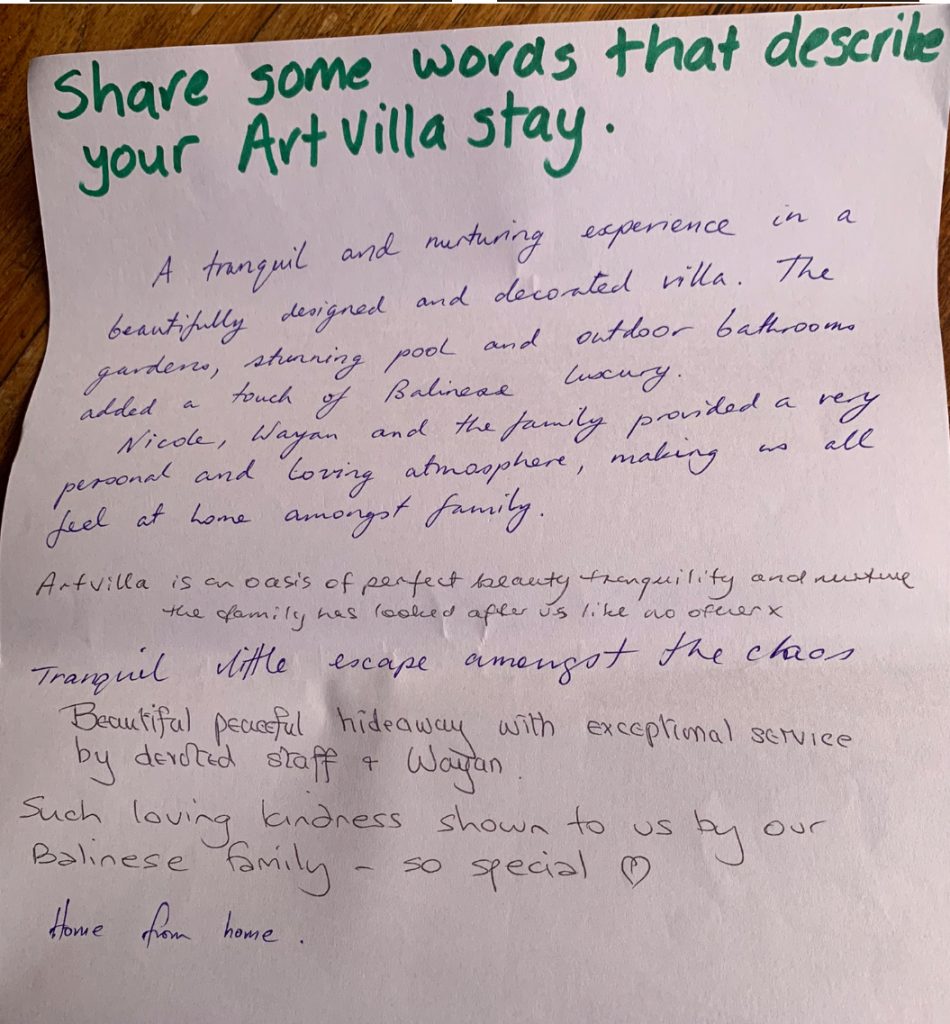 Share some words that describe
your Art Villa stay.
A tranquil and nurturing experience in a
beautifully designed and decorated villa. The
gardens, stunning pool and outdoor bathrooms
added a touch of Balinese luxury.
Nicole, Wayan and the family provided a very
personal and loving atmosphere, making us all
feel at home amongst family.
Artvilla is an oasis of perfect beauty tranquility and nurture
the family has looked after us like no other x
Tranquil little escape amongst the chaos
Beautiful peaceful hideaway with exceptional service
by devoted staff + Wayan.
Such loving kindness shown to us by our
Balinese family - so special ♡
Home from home.